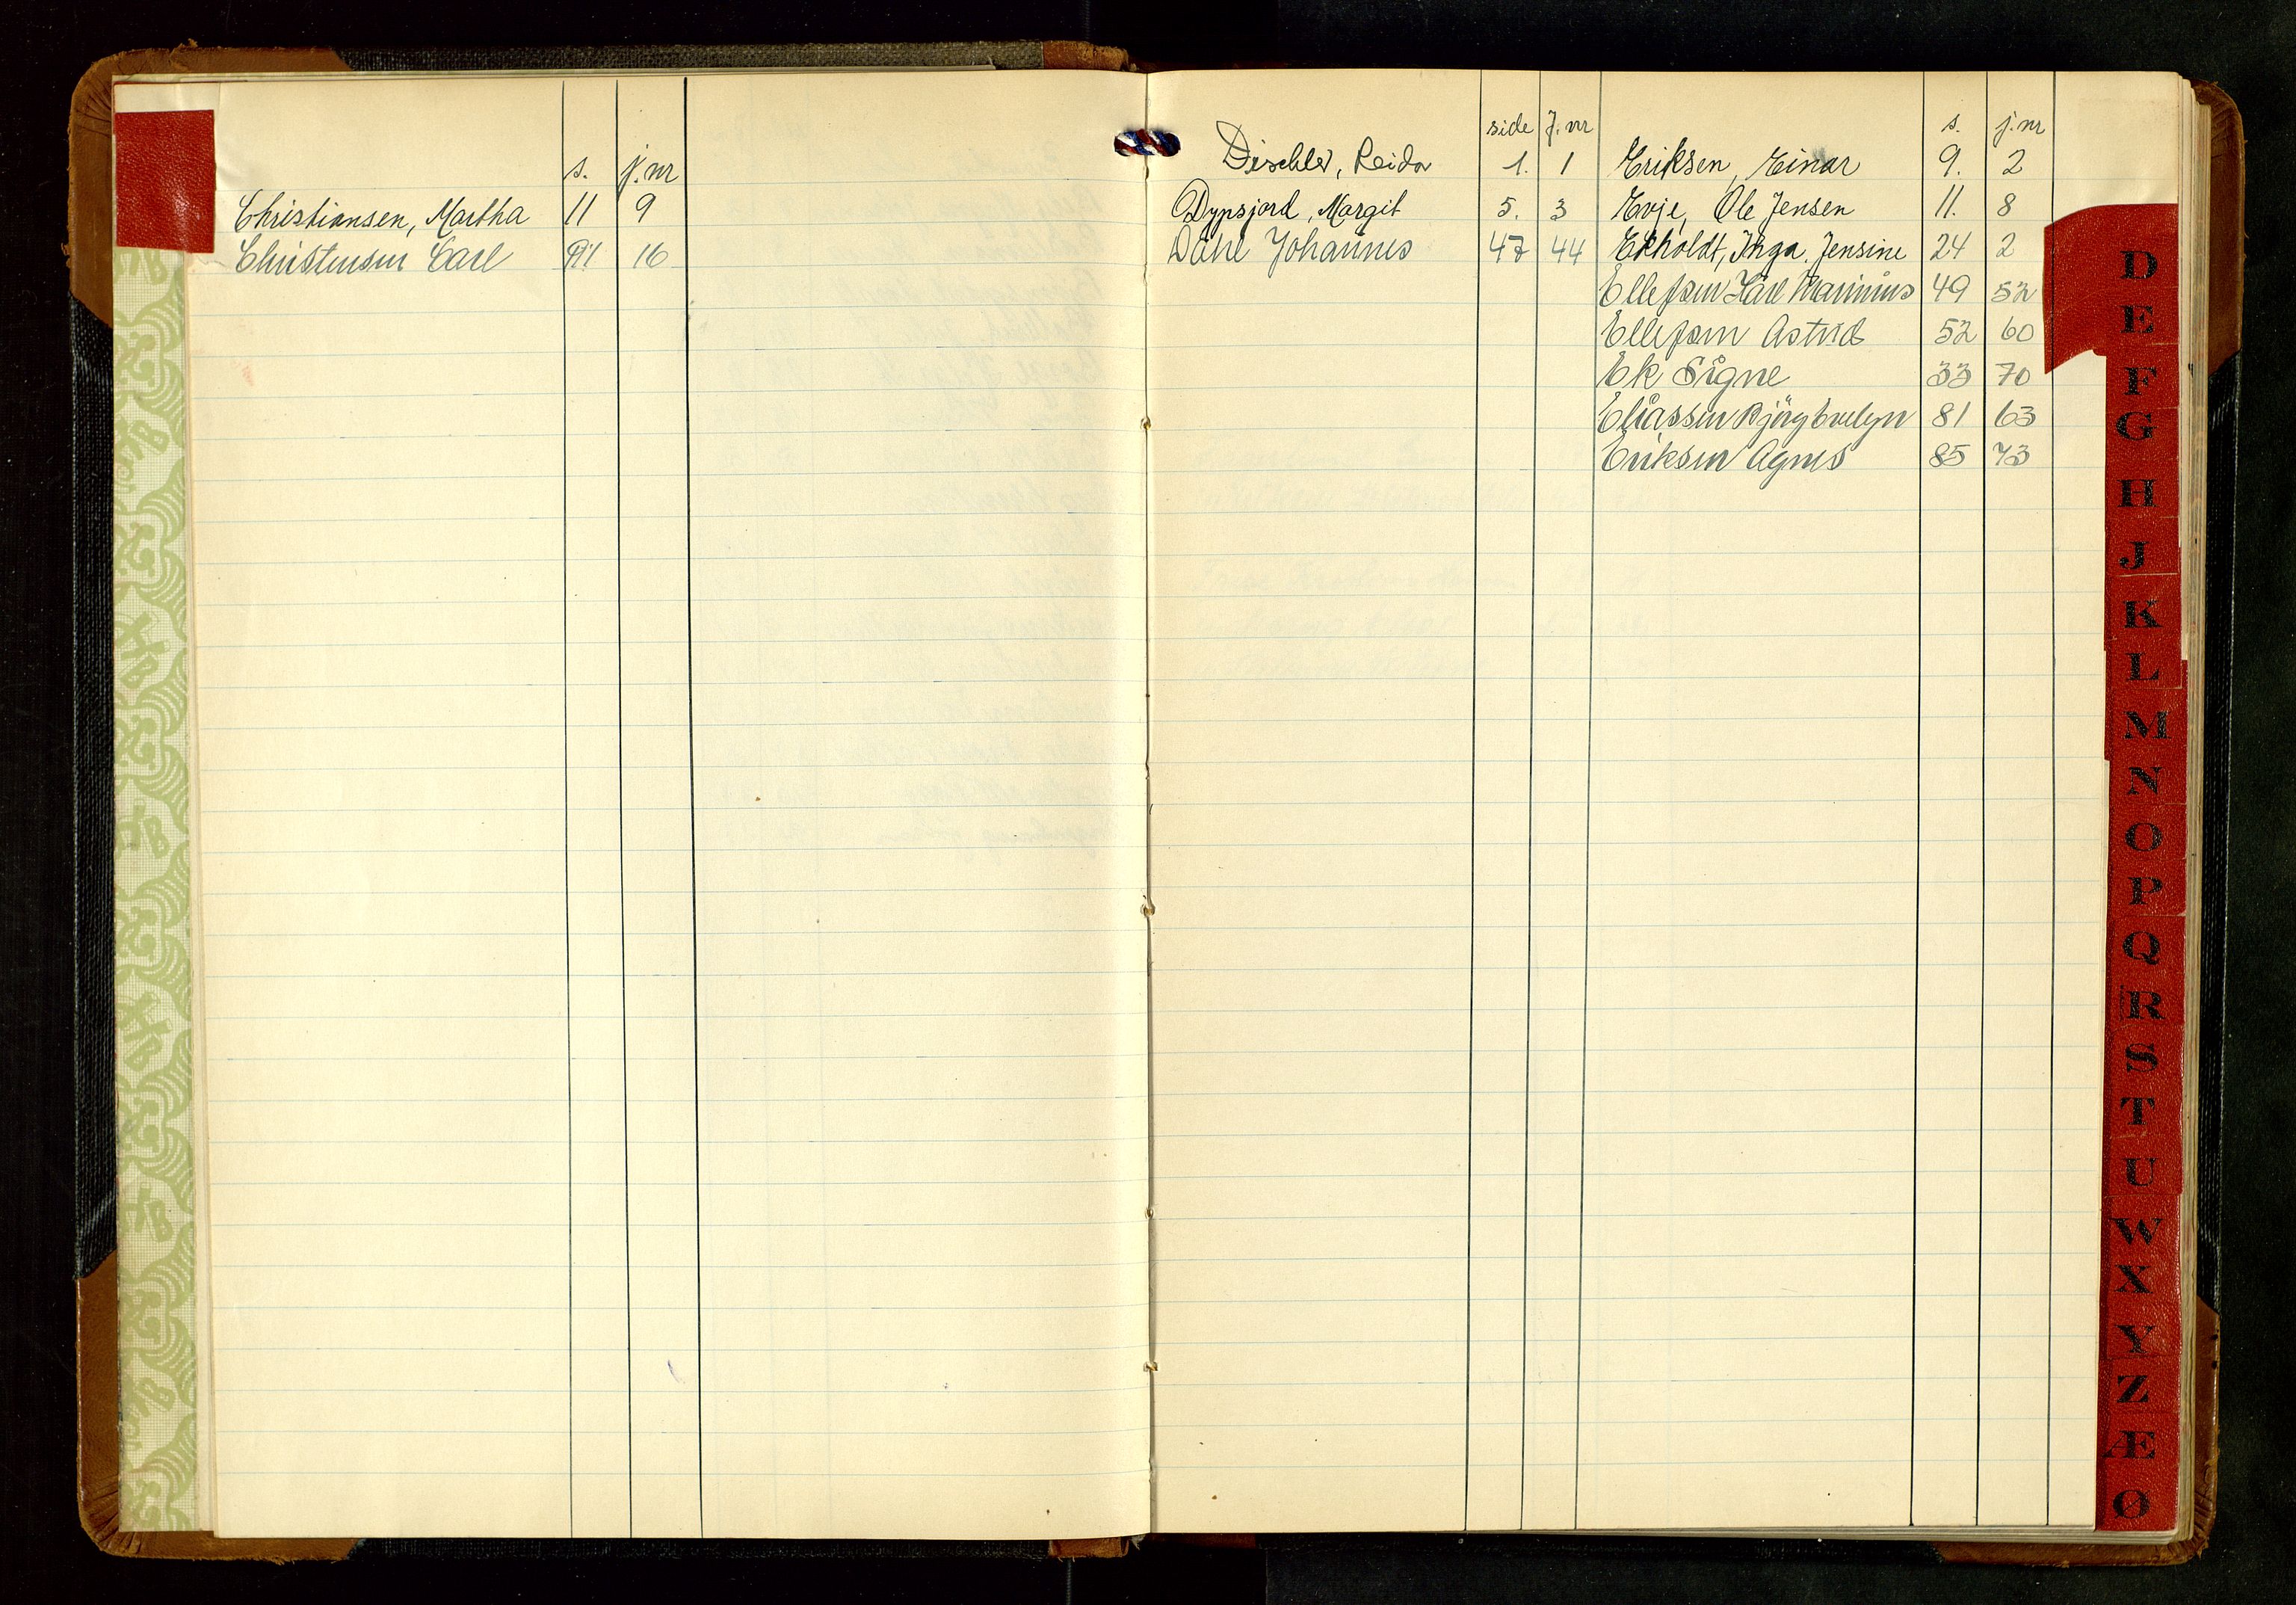 s. j. nr
Christiansen, Martha 11 9
Christensen Carl 16
side J. nr
Dischler, Reidar 1. 1
Dypsjord, Margit 5. 3
Dahl Johannes 47 44
s. j. nr
Eriksen, Einar 9. 2
Evje, Ole Jensen 11. 8
Ekholdt, Inga Jensine 24 2
Ellefsen Karl Marinius 49 52
Ellefsen Astrid 52 60
Ek Signe 33 70
Eliassen Bjørg Evelyn 81 63
Eriksen Agnes 85 73
D
E
F
G
H
J
K
L
M
N
O
P
Q
R
S
T
U
W
X
Y
Z
Æ
Ø